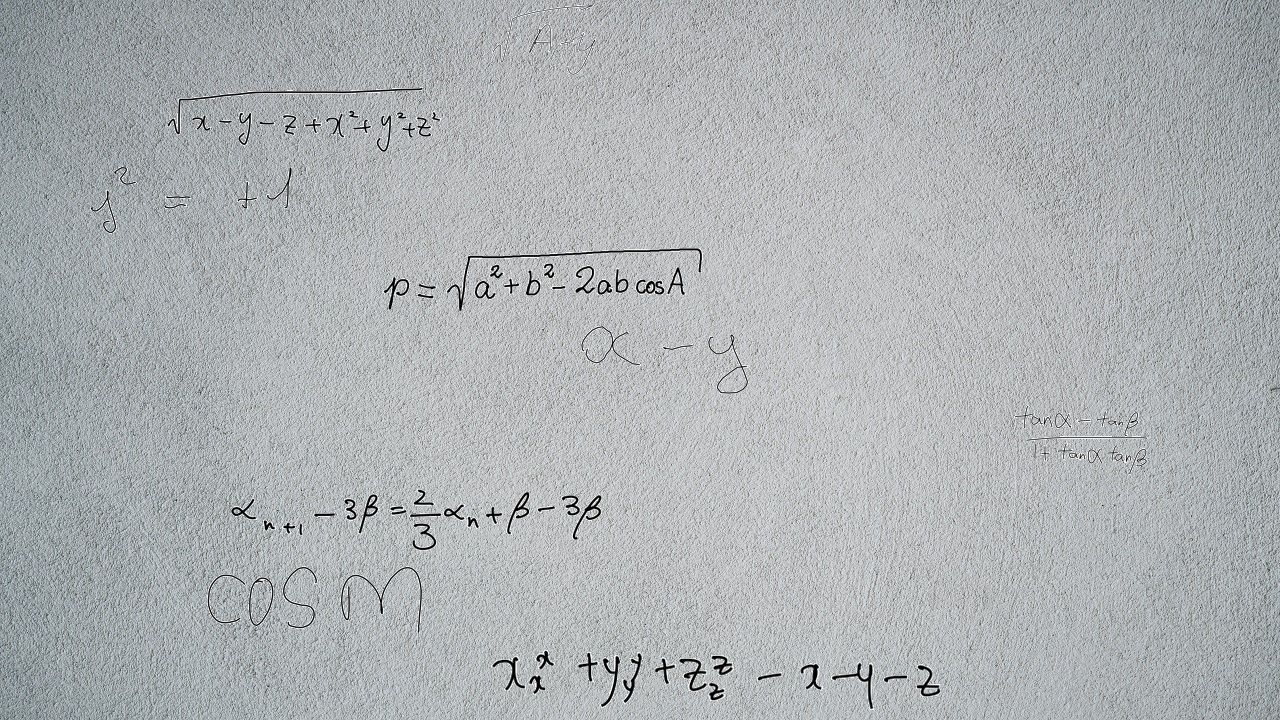 √(A-y)
√(x-y-z+x²+y²+z²)
j² = +1
p = √(a²+b²-2ab cos A)
x - y
(tanα - tanβ)/(1+tanα tanβ)
α_{n+1} - 3β = 2/3 α_n + β - 3β
cos M
x_x^x + y_y^y + z_z^z - x - y - z